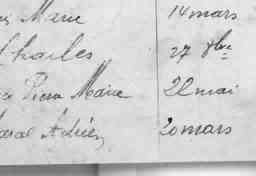 Marie 14 mars
Charles 27 8bre
Pierre Marie 22 mai
Adrien 20 mars